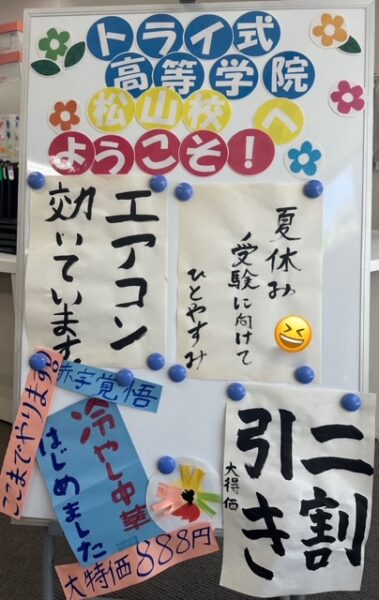 トライ式
高等学院
松山校へ
ようこそ!
エアコン
効いています。
夏休み
受験に向けて
ひとやすみ
ここまでやります!
赤字覚悟
冷やし中華
はじめました
大特価888円
二割
引き
大得価